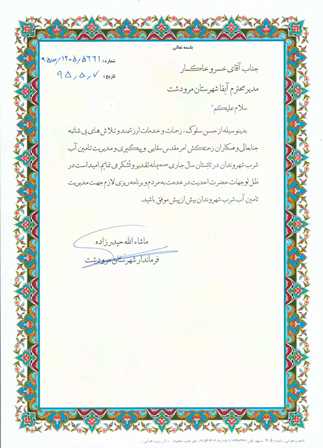 باسمه تعالی
شماره: ۹۵/م/۱۲۰۵/۵۶۶۱
تاریخ: ۹۵،۵،۷
جناب آقای خسرو خاکسار
مدیر محترم آبفا شهرستان مرودشت
سلام علیکم؛
بدینوسیله از حسن سلوک، زحمات و خدمات ارزشمند و تلاش های بی شائبه
جنابعالی و همکاران زحمتکش امر مقدس سقایی و پیگیری و مدیریت تامین آب
شرب شهروندان در تابستان سال جاری صمیمانه تقدیر و تشکر می نمایم. امید است در
ظل توجهات حضرت احدیت در خدمت به مردم و برنامه ریزی لازم جهت مدیریت
تامین آب شرب شهروندان بیش از پیش موفق باشید.
ماشاء الله حیدرزاده
فرماندار شهرستان مرودشت